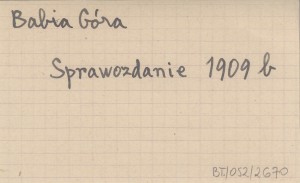 Babia Góra
Sprawozdanie 1909 b
BT/052/2670